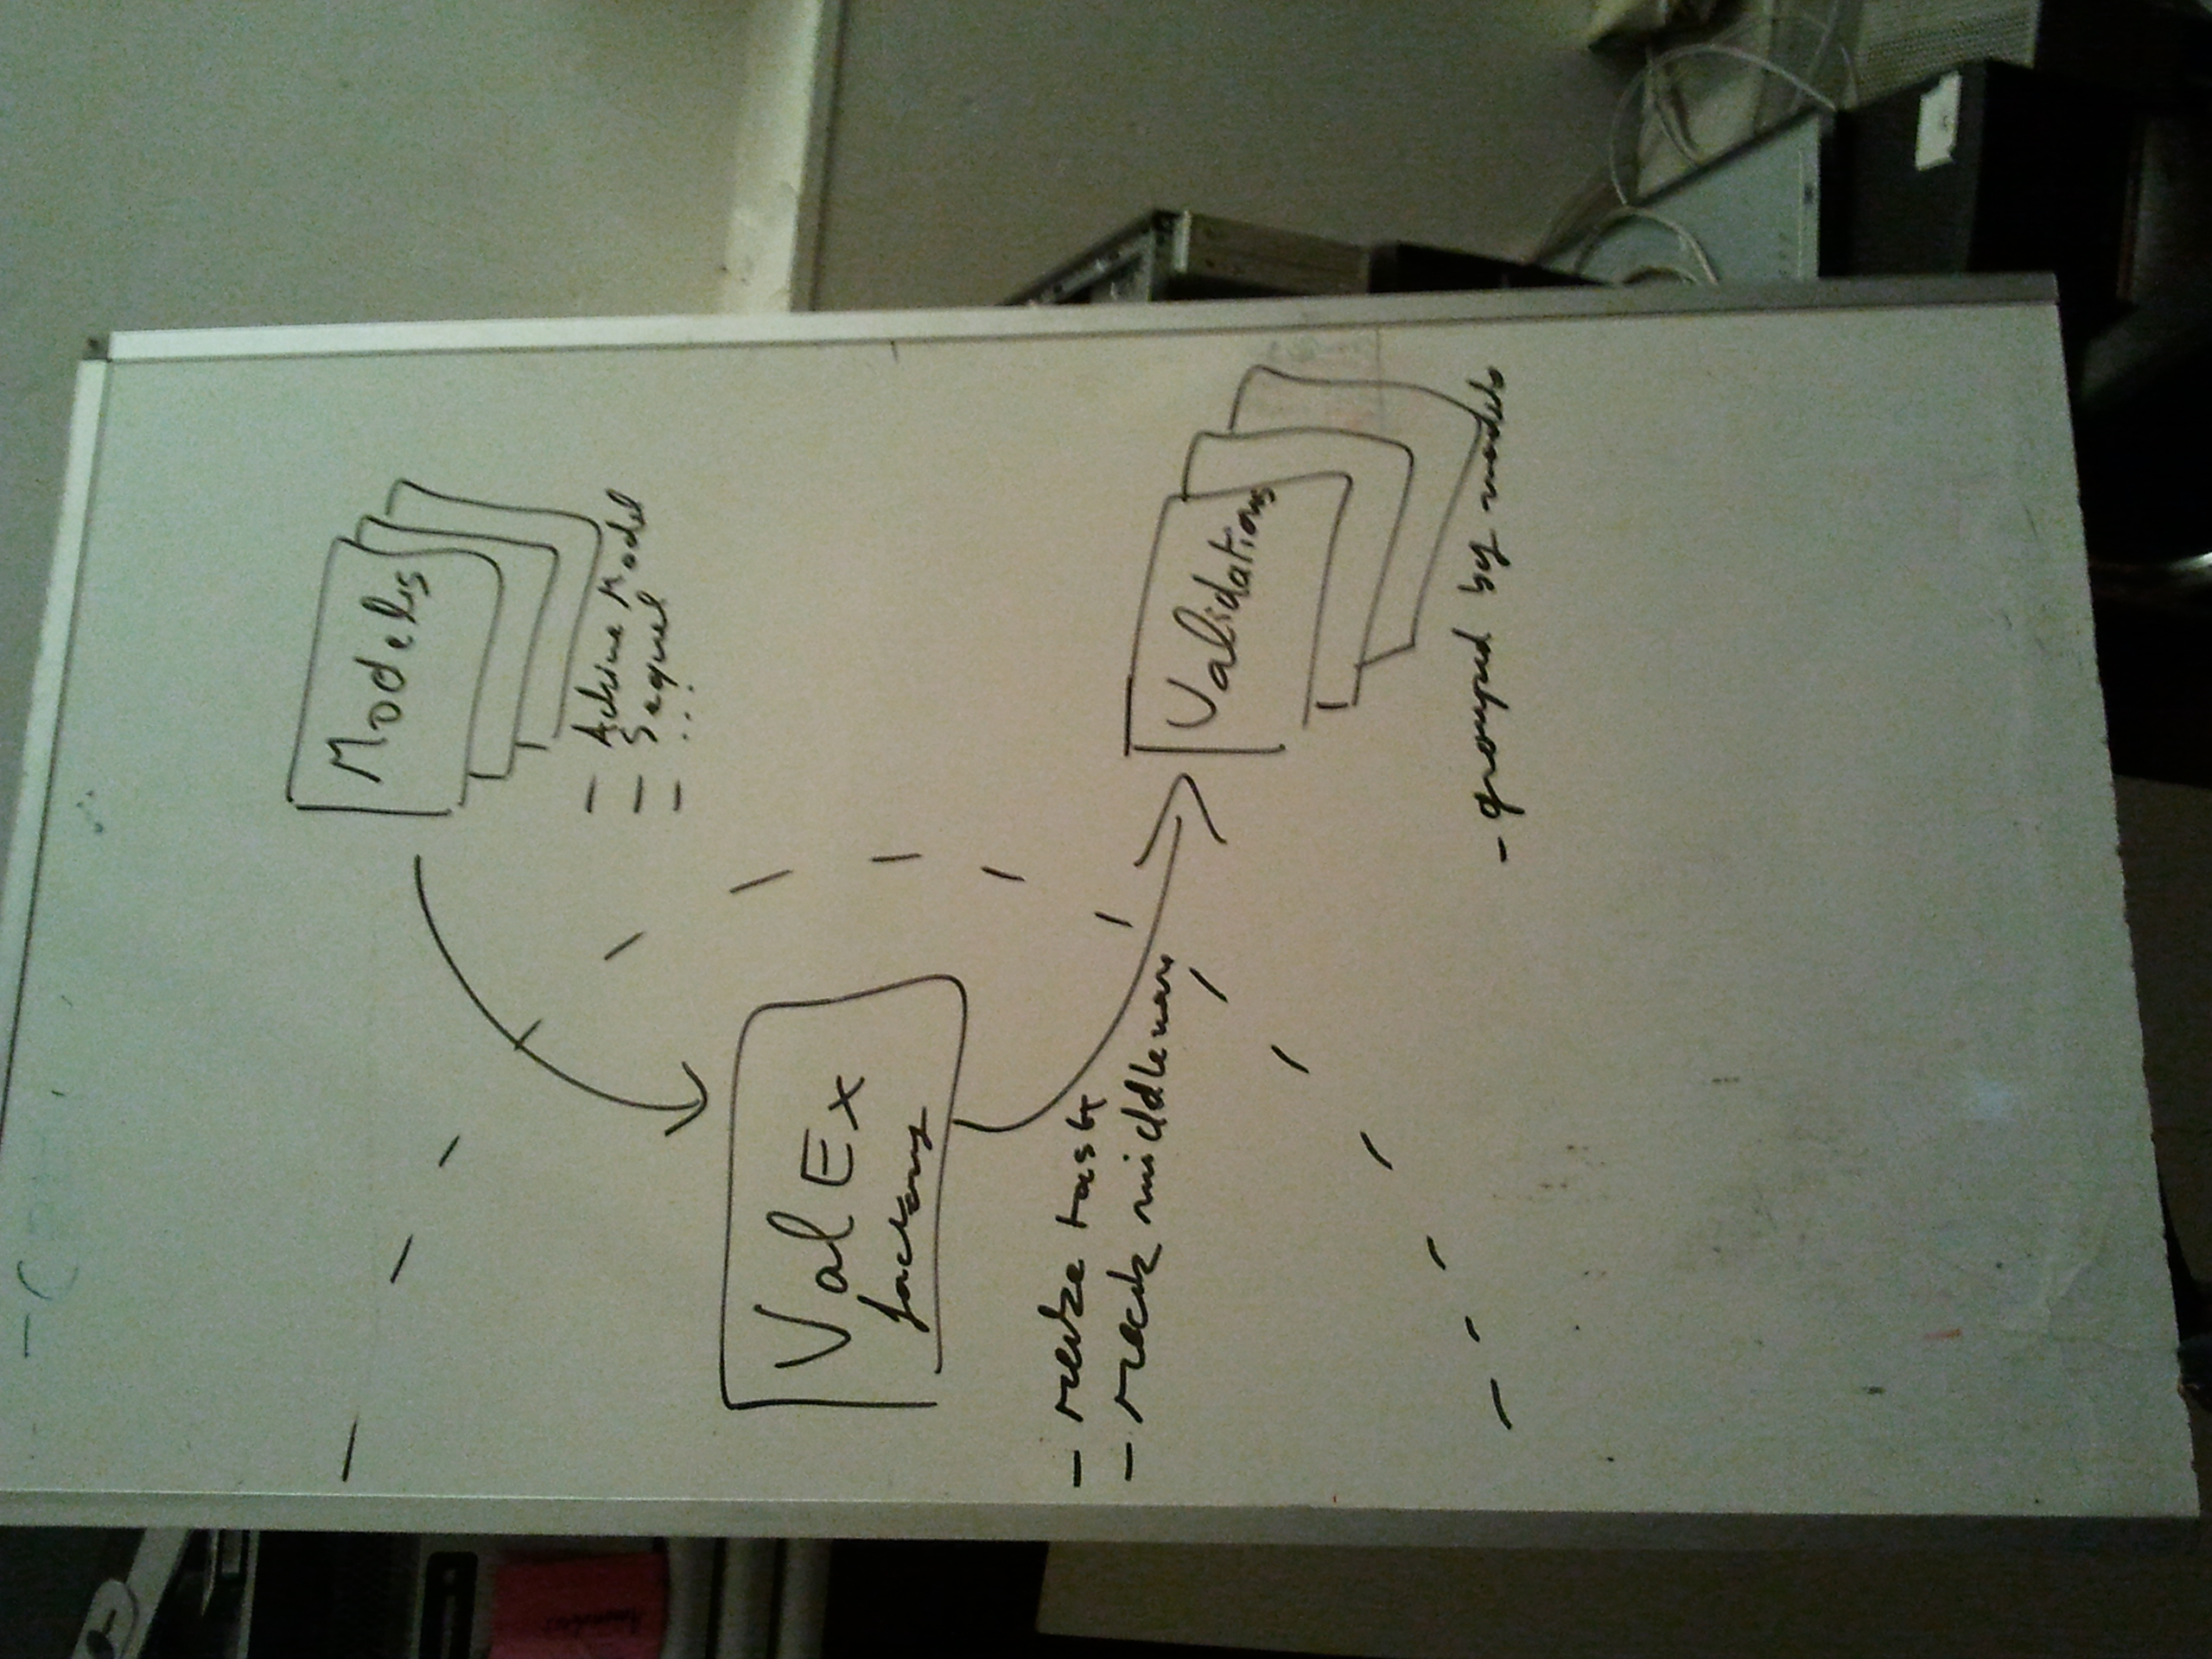 Models
- Active Model
- Sequel
- ...
ValEx
factory
- rake task
- rack middleware
Validations
- grouped by models